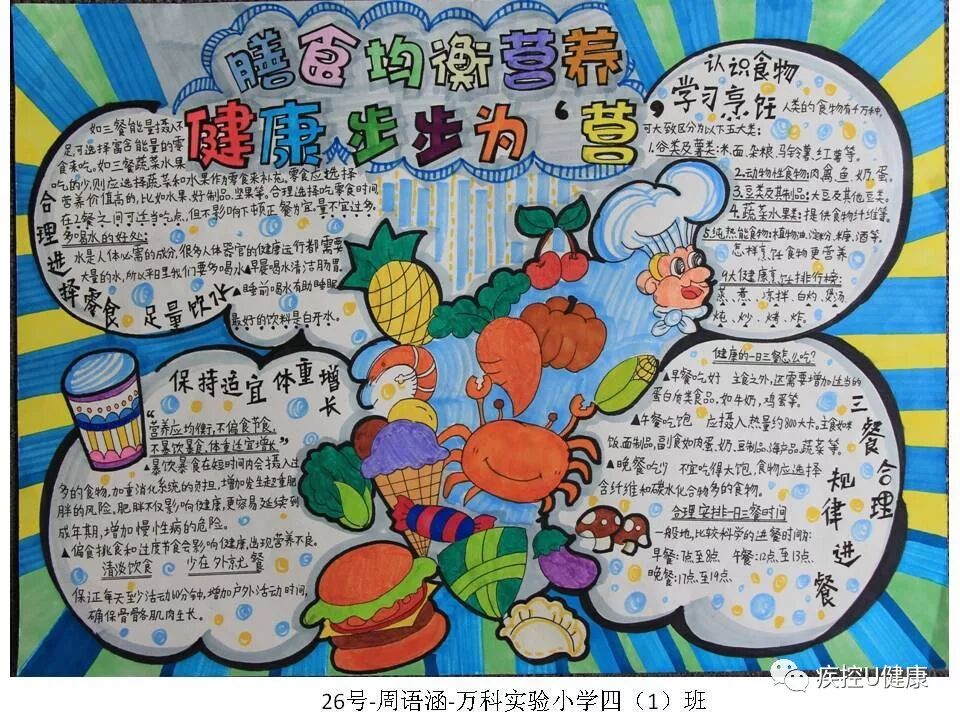 膳食均衡营养
健康步步为‘营’
合理进择零食 足量饮水
如三餐能量摄入不
足可选择富含能量的零
食来吃。如三餐蔬菜水果
吃的少,则应选择蔬菜和水果作为零食来补充,零食应选择
营养价值高的,比如水果、奶制品、坚果等。合理选择吃零食时间
在2餐之间可适当吃点,但不影响下顿正餐为宜,量不宜过多。
多喝水的好处:
水是人体必需的成分,很多人体器官的健康运行都需要
大量的水,所以平日里我们要多喝水▲早晨喝水清洁肠胃。
▲睡前喝水有助睡眠
最好的饮料是白开水。
认识食物
学习烹饪
人类的食物有千万种,
可大致区分为以下五大类:
1.谷类及薯类:米、面、杂粮、马铃薯、红薯等。
2.动物性食物:肉、禽、鱼、奶、蛋。
3.豆类及其制品:大豆及其他豆类。
4.蔬菜水果类:提供食物纤维等。
5.纯热能食物:植物油、淀粉、糖、酒等。
怎样烹饪食物更营养
9大健康烹饪排行榜:
蒸、煮、凉拌、白灼、煲汤
炖、炒、烤、炸
保持适宜体重增长
“营养应均衡,不偏食节食,
不暴饮暴食,体重适宜增长”
▲暴饮暴食在短时间内会摄入过
多的食物,加重消化系统的负担,增加发生超重肥
胖的风险,肥胖不仅影响健康,更容易延续到
成年期,增加慢性病的危险。
▲偏食挑食和过度节食会影响健康,出现营养不良。
清淡饮食 少在外就餐
保证每天至少活动60分钟,增加户外活动时间,
确保骨骼肌肉生长。
三餐合理 规律进餐
健康的一日三餐怎么吃?
▲早餐吃好 主食之外,还需要增加适当的
蛋白质类食品,如牛奶,鸡蛋等。
▲午餐吃饱 应摄入热量约800大卡,主食如米
饭、面制品,副食如肉蛋、奶、豆制品、海产品、蔬菜等。
▲晚餐吃少 不宜吃得太饱,食物应选择
含纤维和碳水化合物多的食物。
合理安排一日三餐时间
一般地,比较科学的进餐时间为:
早餐:7点至8点 午餐:12点至13点
晚餐:17点至19点
疾控U健康
26号-周语涵-万科实验小学四（1）班